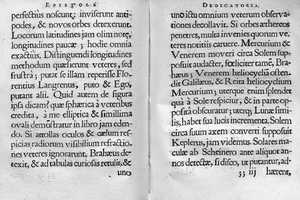 EPISTOLA
perfectius noscunt; invisunt antipodes, & novos orbes deteruntur.
Locorum latitudines jam olim norunt,
longitudines pauci; hodie omnia
exactius. Distinguendi longitudines
methodum quærunt veteres, sed
frustra; putat jam reperisse Florentius
Langrenus, puto & Ego,
putant alii. Quid autem de figura
ipsa dicam? quæ sphærica à veteribus
credita, à me elliptica & simillima
ovali demonstratur in libro jam edendo.
Si attollas oculos & cælum respicias
radiorum visibilium refractionem
veteres ignorarunt. Brahæus detexit,
& ad tabulas curiosas retulit, &
uno
DEDICATORIA.
uno ictu omnium veterum observationes
decollavit. Si orbes æthereos
penetres, multa invenias, quæ non
noverunt veteres. Mercurium &
Venerem moveri circa Solem suspicati
sunt antiqui, soliciter tamen, Brahæus;
Venerem heliocyclam ostendit
Galilæus, & Reita heliocyclum
Mercurium; uterque enim splendet
quà à Sole respicitur, & in parte
opposita obscuratur; uterq; Lunæ similis,
habet sua lucis incrementa. Solem
circa suum axem converti supposuit
Keplerus, jam videmus. Solares maculæ
ab Scheinero ante aliquot annos
detectæ, si dicuo, ut putantur, ad-
33 iij hærent,